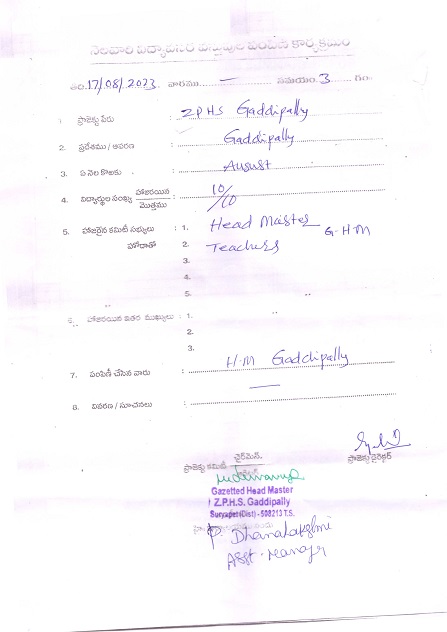 నెలవారి విద్యావసర వస్తువుల పంపిణీ కార్యక్రమం
తేది.17/08/2023 వారము — సమయం.3 గం.
1. ప్రాజెక్టు పేరు : ZPHS Gaddipally
2. ప్రదేశము / ఆవరణ : Gaddipally
3. ఏ నెల కొఱకు : August
4. విద్యార్థుల సంఖ్య హాజరయిన : 10/
మొత్తము 10
5. హాజరైన కమిటీ సభ్యులు : 1. Head Master G-HM
హోదాతో 2. Teachers
3.
4.
5.
6. హాజరయిన ఇతర ముఖ్యులు : 1.
2.
3.
7. పంపిణీ చేసిన వారు : H.M Gaddipally
8. వివరణ / సూచనలు : —
ప్రాజెక్టు కమిటీ చైర్మెన్.
ప్రాజెక్టు డైరెక్టర్
Gazetted Head Master
Z.P.H.S. Gaddipally
Suryapet (Dist) - 508213 T.S.
P. Dhanalakshmi
Asst. Manager